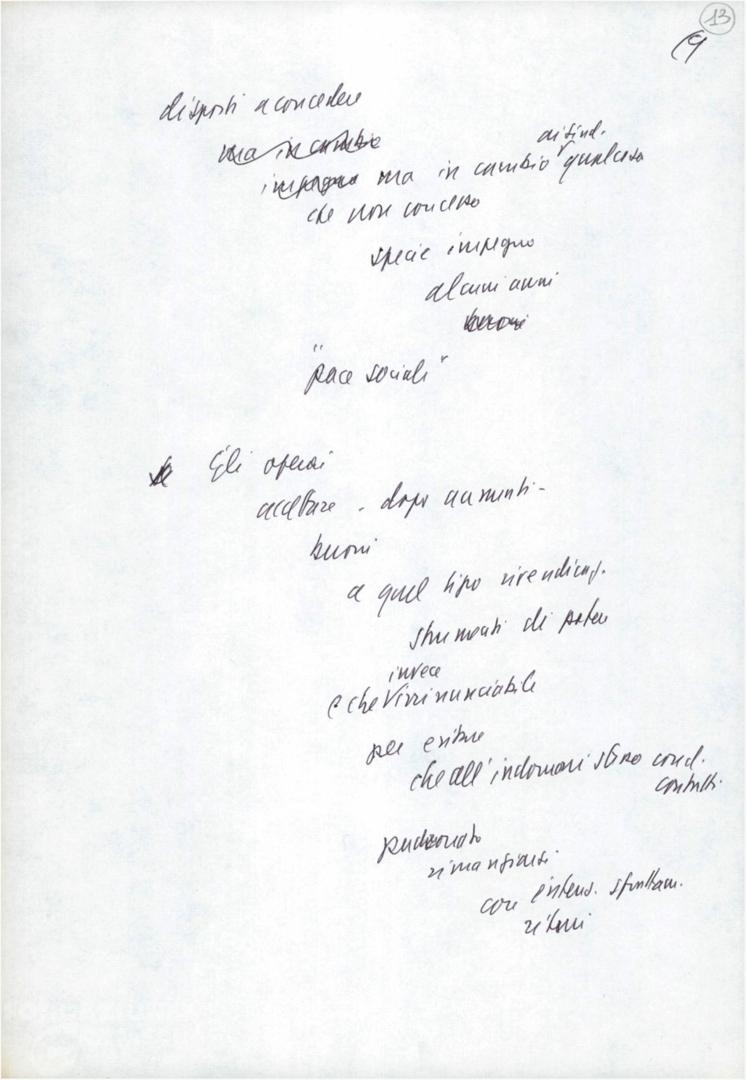 13
19
disposti a concedere
ma in cambio
ai sind.
impegno ma in cambio qualcosa
che non concesso
specie impegno
alcuni anni
buoni
"pace sociale"
Gli operai
accettare - dopo aumenti -
buoni
a quel tipo rivendicaz.
strumenti di potere
invece
e che irrinunciabile
per evitare
che all'indomani stesso concl.
contratti
padronato
rimangiarsi
con intens. sfruttam.
ritmi